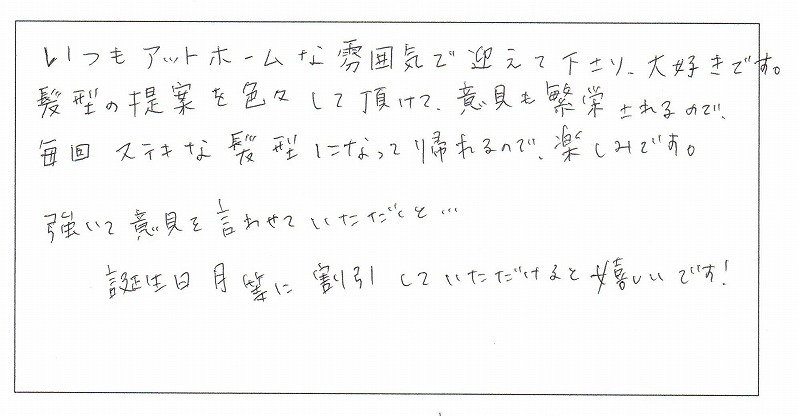 いつもアットホームな雰囲気で迎えて下さり、大好きです。
髪型の提案を色々して頂けて、意見も繁栄されるので、
毎回ステキな髪型になって帰れるので、楽しみです。
強いて意見を言わせていただくと…
誕生日月等に割引していただけると嬉しいです!